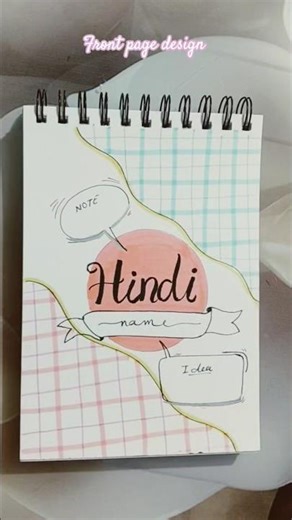 Front page design
NOTE
Hindi
name
Idea